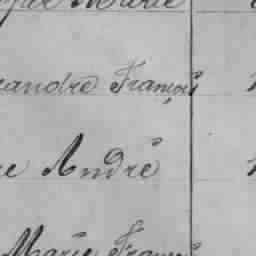 Marie
andre François
André
Marie Franç